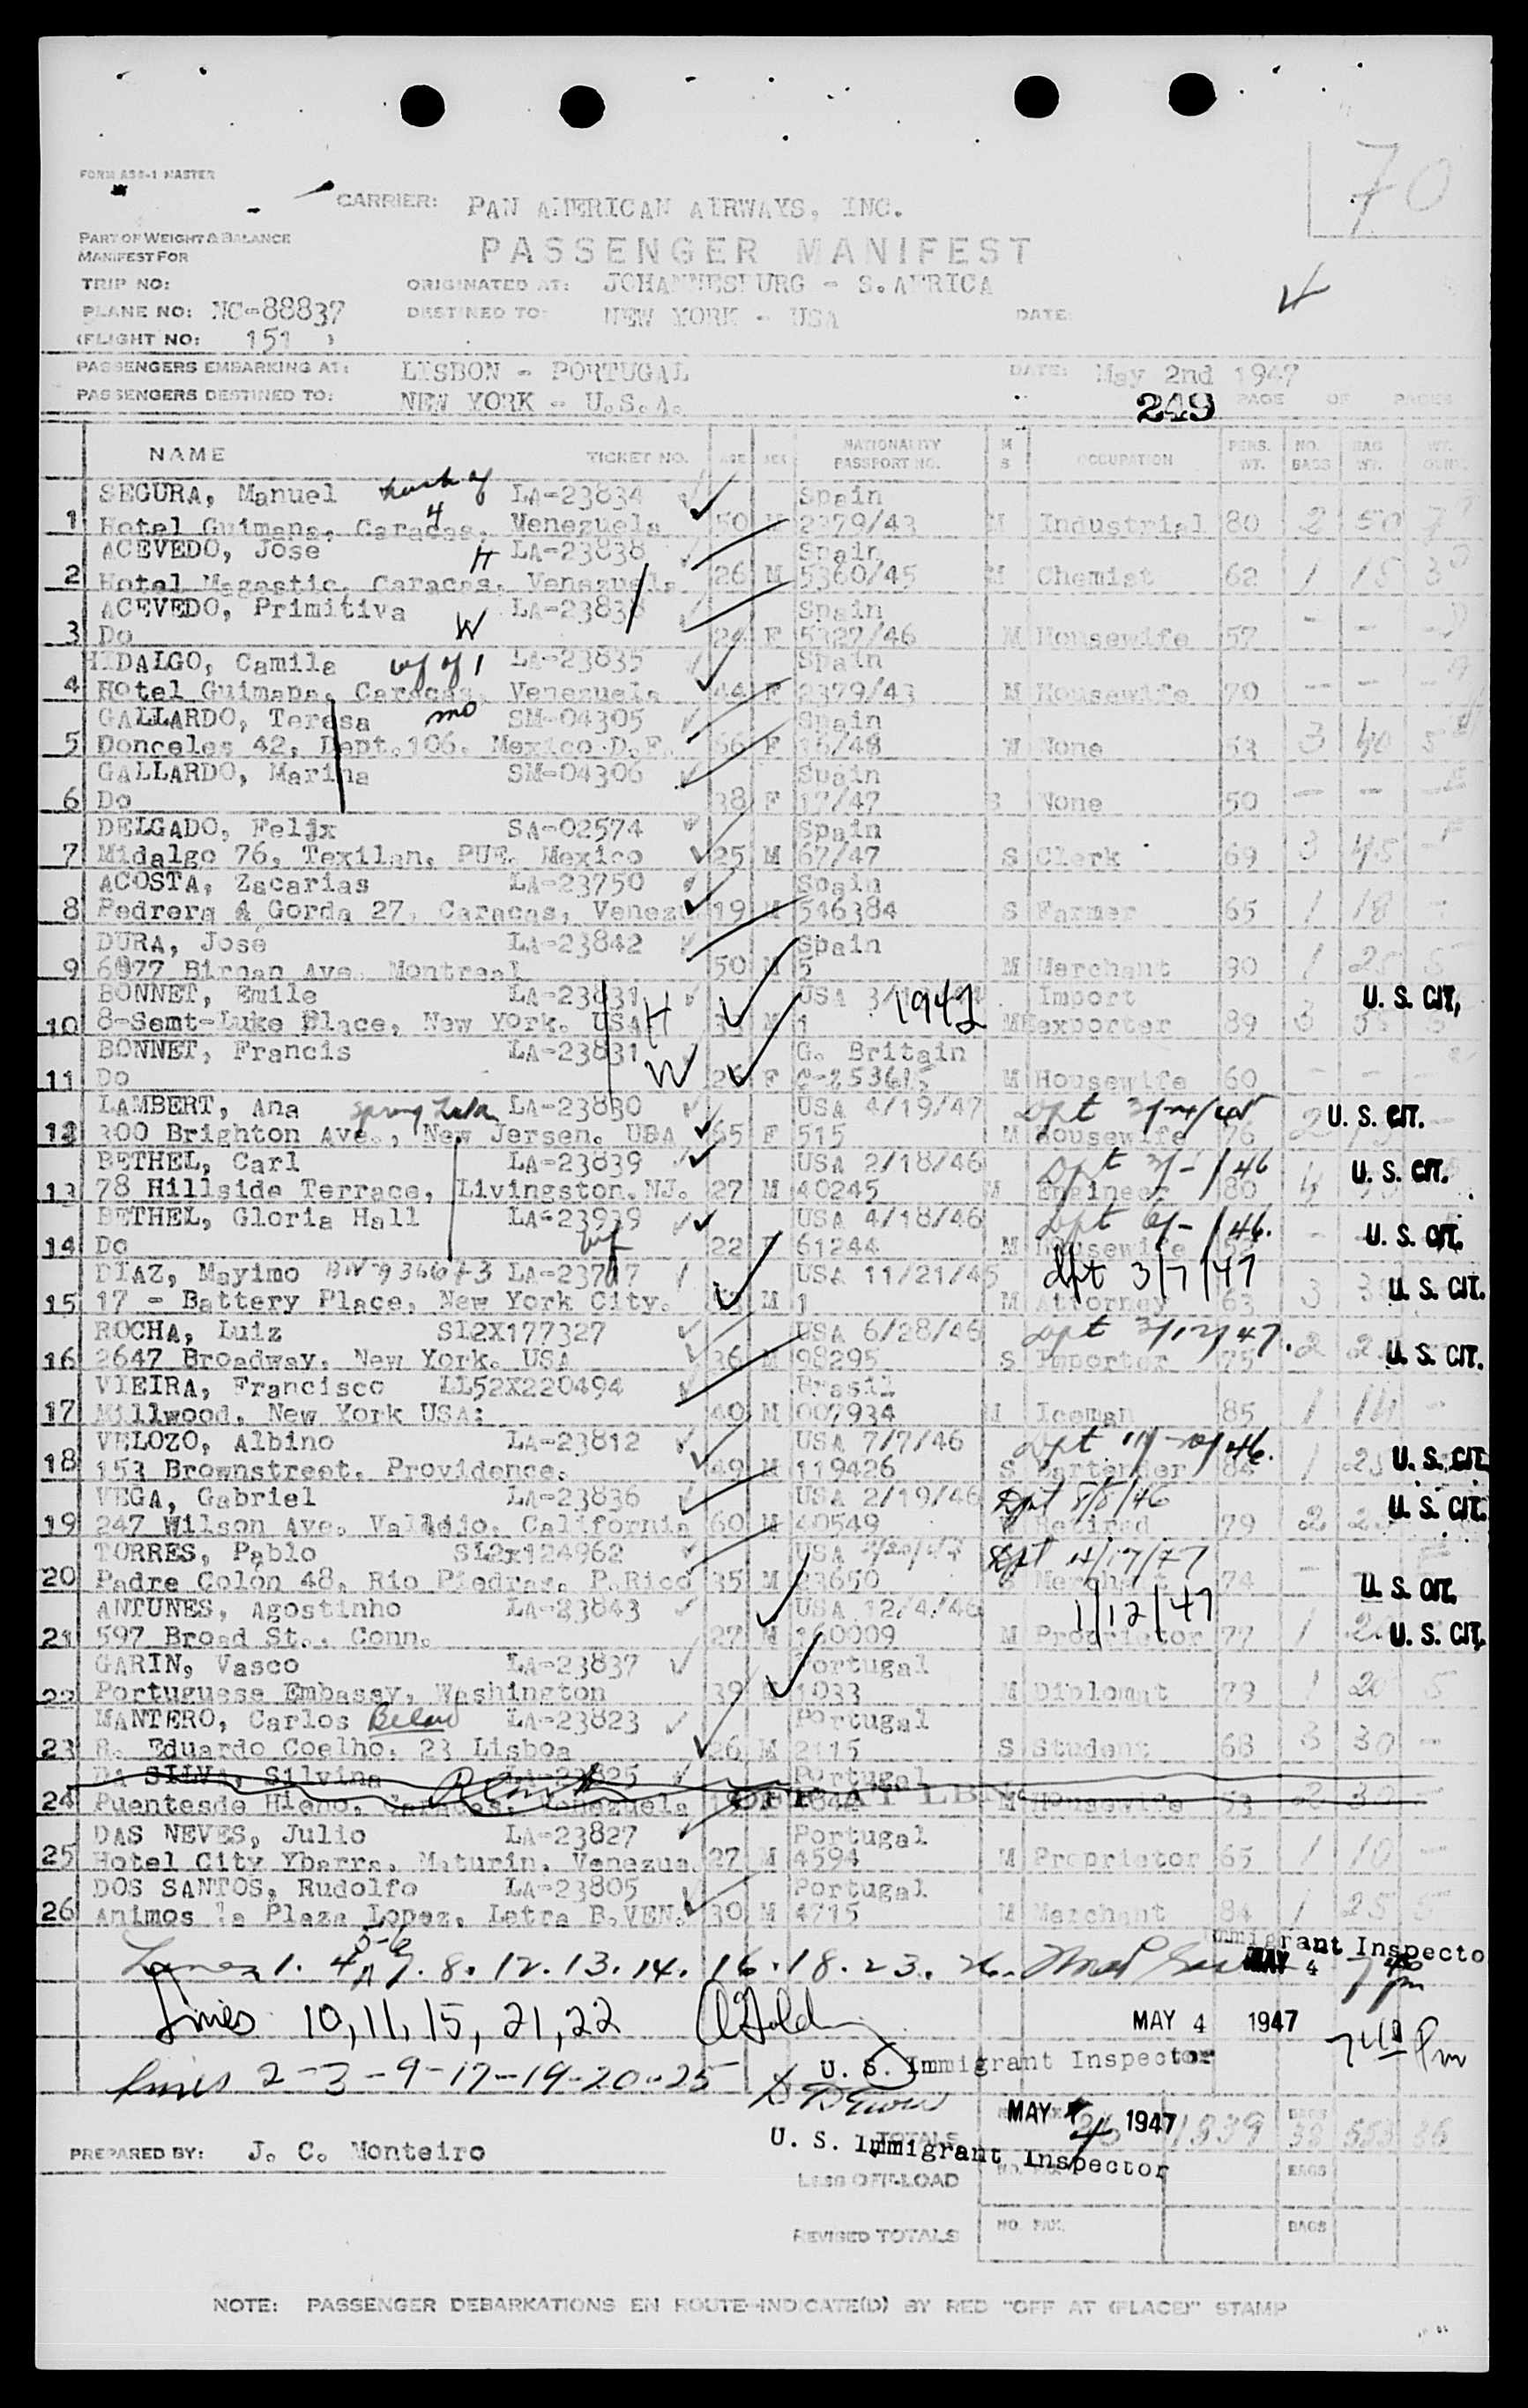 70
FORM ASS-1 MASTER
CARRIER: PAN AMERICAN AIRWAYS, INC.
PART OF WEIGHT & BALANCE
MANIFEST FOR
PASSENGER MANIFEST
TRIP NO: ORIGINATED AT: JOHANNESBURG - S. AFRICA
PLANE NO: NC-88837 DESTINED TO: NEW YORK - USA DATE:
(FLIGHT NO: 151 )
PASSENGERS EMBARKING AT: LISBON - PORTUGAL DATE: May 2nd 1947
PASSENGERS DESTINED TO: NEW YORK - U.S.A. 249 PAGE OF PAGES
NAME TICKET NO. AGE SEX NATIONALITY PASSPORT NO. M S OCCUPATION PERS. WT. NO. BAGS BAG WT.
SEGURA, Manuel LA-23834 Spain
1 Hotel Guimapa, Caracas, Venezuela 50 M 2379/43 M Industrial 80 2 50
ACEVEDO, Jose H LA-23838 Spain
2 Hotel Magestic, Caracas, Venezuela 26 M 5360/45 M Chemist 62 1 15
ACEVEDO, Primitiva W LA-23838 Spain
3 Do 24 F 5327/46 M Housewife 57 - -
HIDALGO, Camila wf of 1 LA-23835 Spain
4 Hotel Guimapa, Caracas, Venezuela 44 F 2379/43 M Housewife 70 - - -
GALLARDO, Teresa mo SM-04305 Spain
5 Donceles 42, Dept.106, Mexico D.F. 66 F 16/48 W None 53 3 40 5
GALLARDO, Marina SM-04306 Spain
6 Do 38 F 17/47 S None 50 - - -
DELGADO, Felix SA-02574 Spain
7 Midalgo 76, Texilan, PUE. Mexico 25 M 67/47 S Clerk 69 3 45 -
ACOSTA, Zacarias LA-23750 Spain
8 Pedrera & Gorda 27, Caracas, Venezu 19 M 546384 S Farmer 65 1 18 -
DURA, Jose LA-23842 Spain
9 6977 Birnan Ave. Montreal 50 M 5 M Merchant 80 1 25 5
BONNET, Emile LA-23831 USA 1947 Import U. S. CIT.
10 8-Semt-Luke Place, New York. USA H M 1 M exporter 89 3
BONNET, Francis LA-23831 G. Britain
11 Do W F M Housewife 60 - - -
LAMBERT, Ana LA-23830 USA 4/19/47 U. S. CIT.
12 300 Brighton Ave., New Jersen. USA 65 F 515 M Housewife 76 2
BETHEL, Carl LA-23839 USA 2/18/46 U. S. CIT.
13 78 Hillside Terrace, Livingston. NJ. 27 M 40245 M Engineer 80 4
BETHEL, Gloria Hall LA-23939 USA 4/18/46 U. S. CIT.
14 Do wf 22 F 61244 M Housewife
DIAZ, Mayimo LA-23707 USA 11/21/45 dpt 3/7/47 U. S. CIT.
15 17 - Battery Place, New York City. M 1 M Attorney 63 3
ROCHA, Luiz S12X177327 USA 6/28/46 dpt 3/12/47. U. S. CIT.
16 2647 Broadway, New York. USA 36 M 98295 S Importer 75 2
VIEIRA, Francisco LL52X220494 Brasil
17 Millwood, New York USA: 40 M 007934 Iceman 85 1 14 -
VELOZO, Albino LA-23812 USA 7/7/46 U. S. CIT.
18 153 Brownstreet, Providence. 49 M 119426 S Bartender 84 1 25
VEGA, Gabriel LA-23836 USA 2/19/46 Dpt 8/8/46 U. S. CIT.
19 247 Wilson Ave. Vallejo, California 60 M 40549 Retired 79 2
TORRES, Pablo S12x124962 USA U. S. CIT.
20 Padre Colon 48, Rio Piedras, P.Rico 35 M 23650 Merchant 74 -
ANTUNES, Agostinho LA-23843 USA 12/4/46 1/12/47 U. S. CIT.
21 597 Broad St., Conn. 27 M 160009 M Proprietor 77 1
GARIN, Vasco LA-23837 Portugal
22 Portuguese Embassy, Washington 39 M 1033 M Diplomat 79 1 20 5
MANTERO, Carlos LA-23823 Portugal
23 R. Eduardo Coelho, 23 Lisboa 26 M 2115 S Student 68 3 30 -
DA SILVA, Silvina LA-23825 Portugal
24 Puentesde Hieno, Caracas, Venezuela OFF AT LBN Housewife 53 2 30
DAS NEVES, Julio LA-23827 Portugal
25 Hotel City Ybarra, Maturin, Venezue. 27 M 4594 M Proprietor 65 1 10 -
DOS SANTOS, Rudolfo LA-23805 Portugal
26 Animos la Plaza Lopez, Letra B.VEN. 30 M 4715 M Merchant 84 1 25 5
5-6
Lines 1. 4. 7. 8. 12. 13. 14. 16. 18. 23. 26. Immigrant Inspecto
MAY 4
Lines 10, 11, 15, 21, 22 MAY 4 1947
U. S. Immigrant Inspector
Lines 2-3-9-17-19-20-25
MAY 4 1947
TOTALS 1839 38 553 36
U. S. Immigrant Inspector
PREPARED BY: J. C. Monteiro
Less OFF-LOAD NO. PAX. BAGS
REVISED TOTALS NO. PAX. BAGS
NOTE: PASSENGER DEBARKATIONS EN ROUTE INDICATE(D) BY RED "OFF AT (PLACE)" STAMP